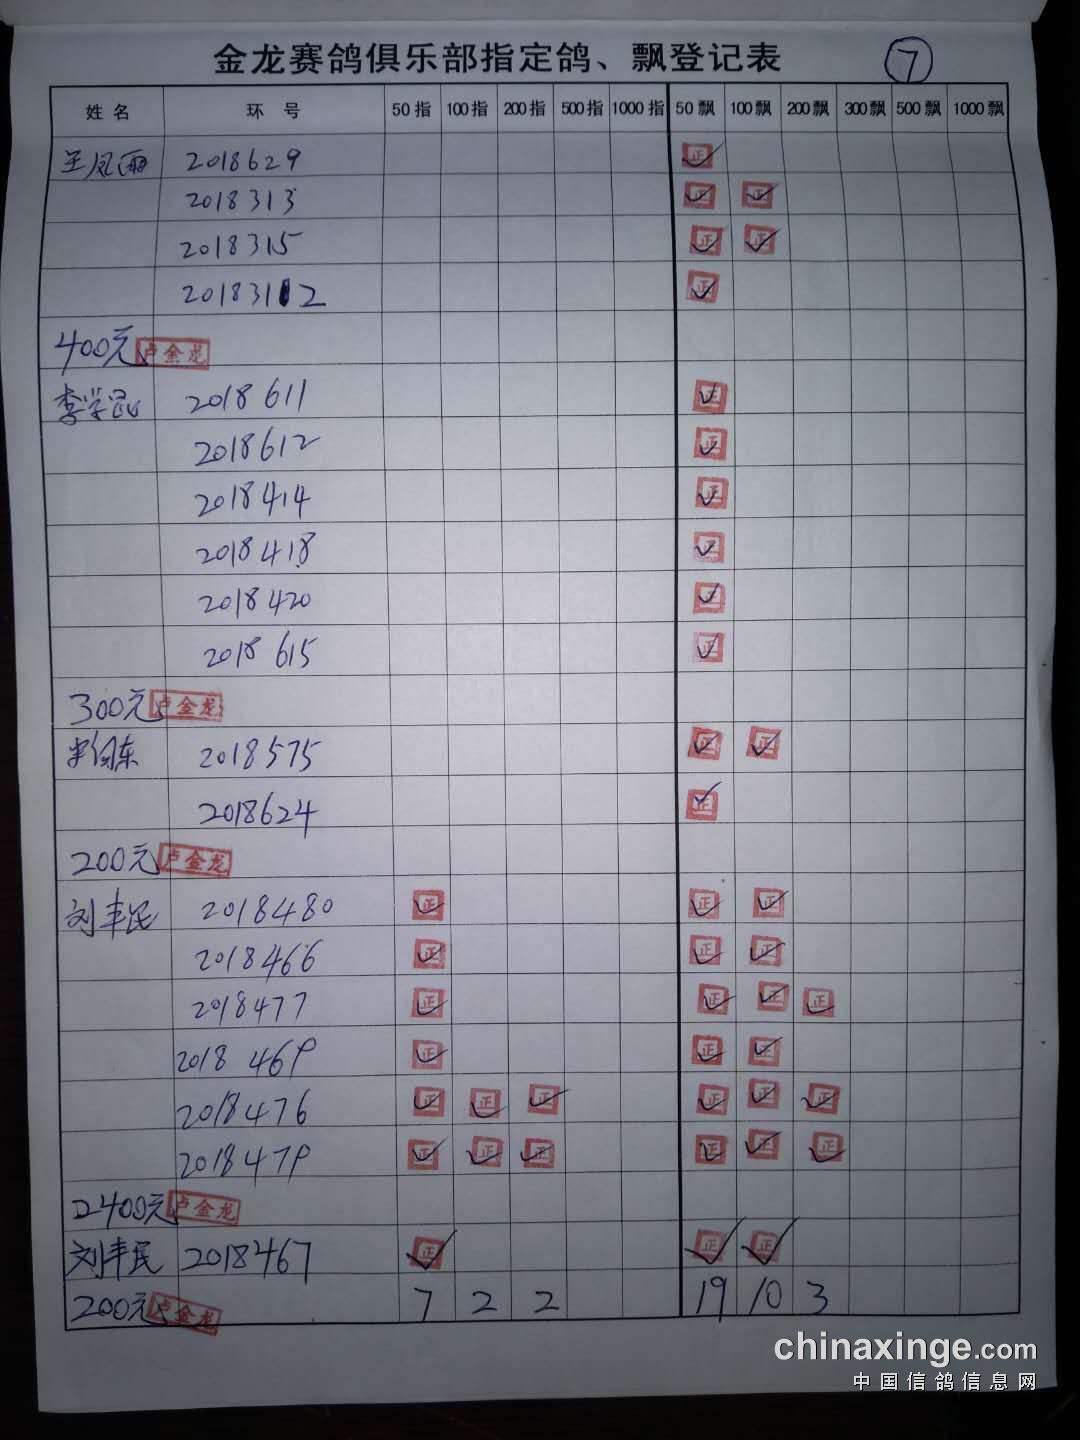 金龙赛鸽俱乐部指定鸽、飘登记表 7
姓名 环号 50指 100指 200指 500指 1000指 50飘 100飘 200飘 300飘 500飘 1000飘
王凤雨 2018629 正
2018313 正 正
2018315 正 正
2018312 正
400元 卢金龙
李学昆 2018611 正
2018612 正
2018414 正
2018418 正
2018420 正
2018615 正
300元 卢金龙
2018575 正 正
2018624 正
200元 卢金龙
刘丰民 2018480 正 正 正
2018466 正 正 正
2018477 正 正 正 正
2018469 正 正 正
2018476 正 正 正 正 正 正
2018479 正 正 正 正 正 正
2400元 卢金龙
刘丰民 2018467 正 正 正
200元 卢金龙 7 2 2 19 10 3
chinaxinge.com
中国信鸽信息网